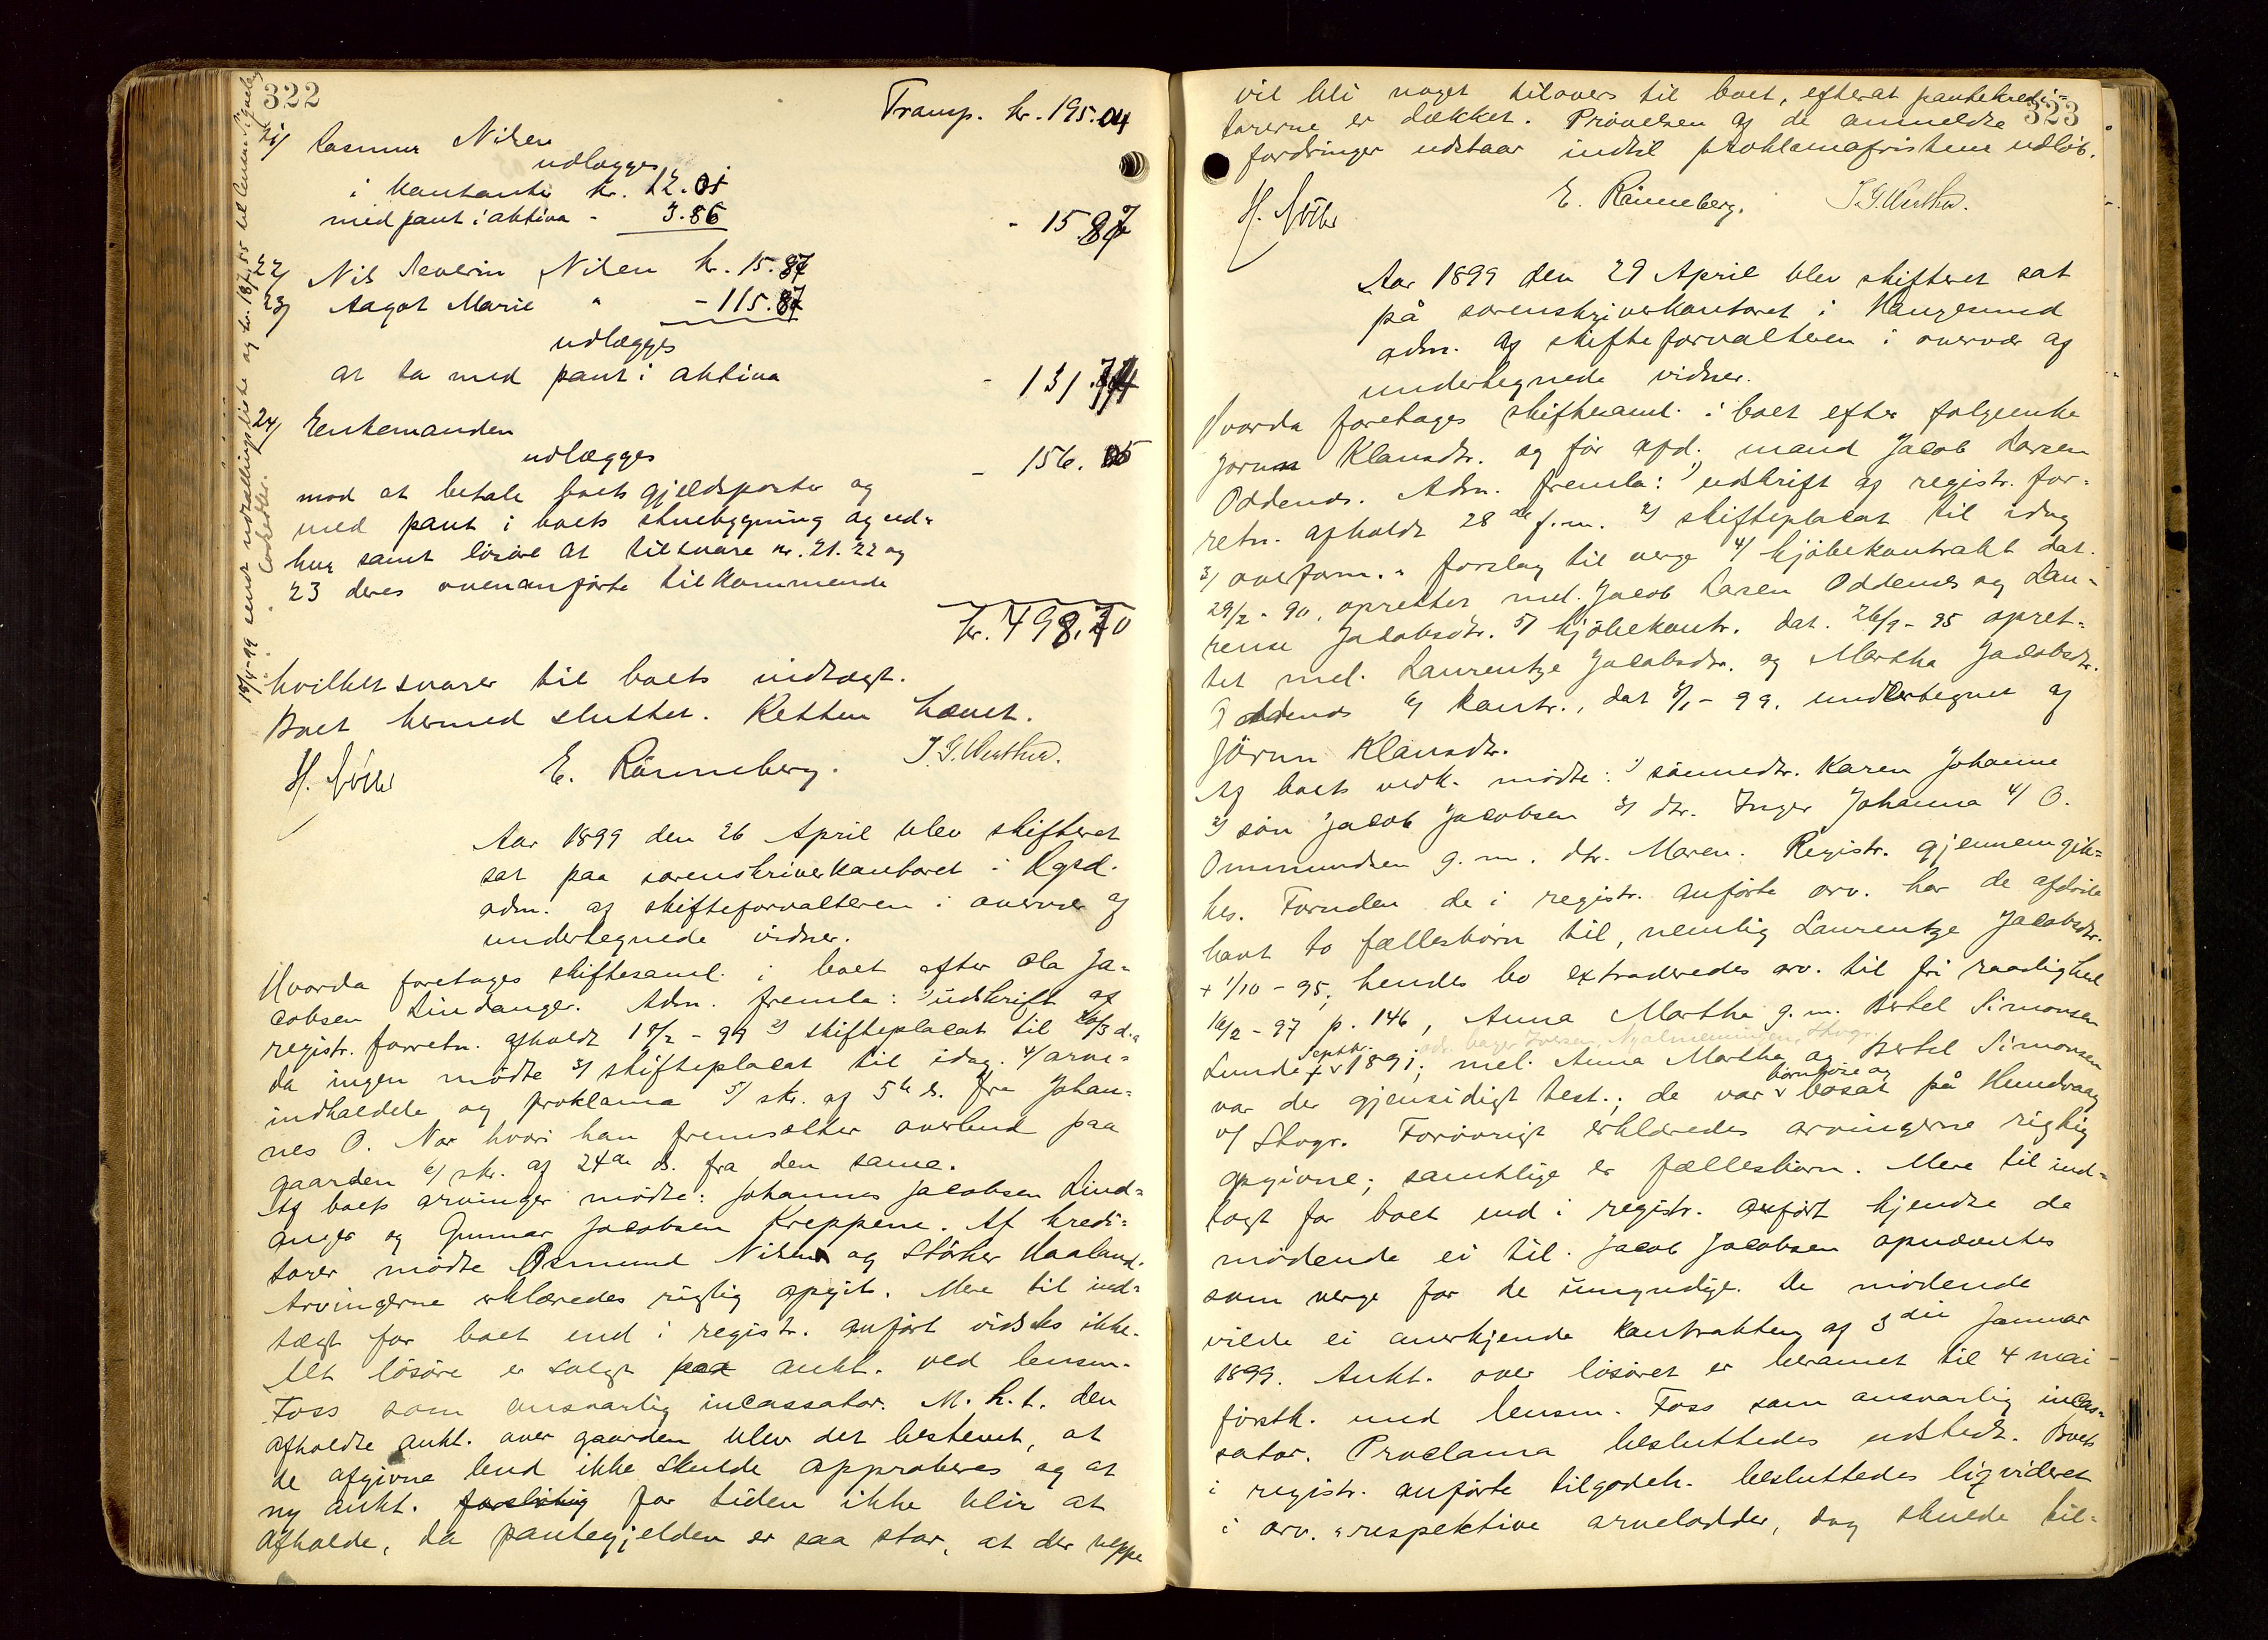 322
Transp. kr. 195.04
21/ Rasmus Nilsen
udlægges
i kontanter kr. 12.01
med pant i aktiva - 3.86
- 15.87
22/ Nils Severin Nilsen kr. 15.87
23/ Aagot Marie " - 115.87
udlægges
at ta med pant i aktiva - 131.74
24/ Enkemanden
udlægges - 156.05
mod at betale boets gjældsposter og
med pant i boets stuebygning og ud-
hus samt løsøre at tilsvare nr. 21. 22 og
23 deres ovenanførte tilkommende
kr. 498.70
hvilket svarer til boets indtægt.
Boet hermed sluttet. Retten hævet.
E. Rønneberg. J. G. Westhed.
Aar 1899 den 26 April blev skifteret
sat paa sorenskriverkontoret i Hgsd.
adm. af skifteforvalteren i overvær af
undertegnede vidner.
Hvorda foretoges skiftesaml. i boet efter Ola Ja-
cobsen Lindanger. Adm. fremla: 1) udskrift af
registr. forretn. afholdt 18/2 - 99 2) skifteplacat til 20/3 d.a
da ingen mødte 3/ skifteplacat til idag. 4/ arve-
indkaldelse og proklama 5/ skr. af 5te ds. fra Johan-
nes O. Nor hvori han fremsætter overbud paa
gaarden 6/ skr. af 24de ds. fra den same.
Af boets arvinger mødte: Johannes Jacobsen Lind-
anger og Gunnar Jacobsen Kreppene. Af kredi-
torer mødte Osmund Nilsen og Størker Haaland.
Arvingerne erklæredes rigtig opgit. Mere til ind-
tægt for boet end i registr. anført vidstes ikke.
Alt løsøre er solgt paa aukt. ved lensm.
Foss som ansvarlig incassator. M. h. t. den
afholdte aukt. over gaarden blev det bestemt, at
de afgivne bud ikke skulde approberes og at
ny aukt. for tiden ikke blir at
afholde, da pantegjelden er saa stor, at der neppe
323
vil bli noget tilovers til boet, efterat pantekredi-
torerne er dækket. Prøvelsen af de anmeldte
fordringer udstaar indtil proklamafristens udløb.
E. Rønneberg. J. G. Westhed.
Aar 1899 den 29 April blev skifteret sat
på sorenskriverkontoret i Haugesund
adm. af skifteforvalteren i overvær af
undertegnede vidner.
Hvorda foretoges skiftesaml. i boet efter folgeenke
Jørun Klausdtr. og før afd. mand Jacob Larsen
Oddenes. Adm. fremla: 1) udskrift af registr. for-
retn. afholdt 28de f.m. 2) skifteplacat til idag
3/ overform. " forslag til verge 4/ kjøbekontrakt dat.
29/2 - 90, oprettet mel. Jacob Larsen Oddenes og Lau-
rense Jacobsdtr. 5/ kjøbekontr. dat. 26/9 - 95 opret-
tet mel. Laurentze Jacobsdtr. og Martha Jacobsdtr.
Oddenes 6/ kontr., dat 3/1 - 99, undertegnet af
Jørun Klausdtr.
Af boets vedk. mødte: 1) sønnedtr. Karen Johanne
2) søn Jacob Jacobsen 3/ dtr. Inger Johanna 4/ O.
Ommundsen g. m. dtr. Maren. Registr. gjennemgik-
kes. Foruden de i registr. anførte arv. har de afdøde
havt to fællesbørn til, nemlig Laurentze Jacobsdtr.
+ 1/10 - 95, hendes bo extraderedes arv. til fri raadighed
16/2 - 97 p. 146, Anna Martha g. m. Bertel Simonsen
Lunde + Septbr. 1891; mel. Anna Martha og Bertel Simonsen
var der gjensidigt test.; de var barnløse og bosat på Hundvaag
v/ Stvgr. Forøvrigt erklæredes arvingerne rigtig
opgivne; samtlige er fællesbørn. Mere til ind-
tægt for boet end i registr. anført kjendte de
mødende ei til. Jacob Jacobsen opnævntes
som verge for de umyndige. De mødende
vilde ei anerkjende kontrakten af 3die Januar
1899. Aukt. over løsøret er berammet til 4 mai
førstk. med lensm. Foss som ansvarlig incas-
sator. Proclama besluttedes udstedt. Boets
i registr. anførte tilgodeh. besluttedes liqvideret
i arv. respektive arvelodder, dog skulde til-